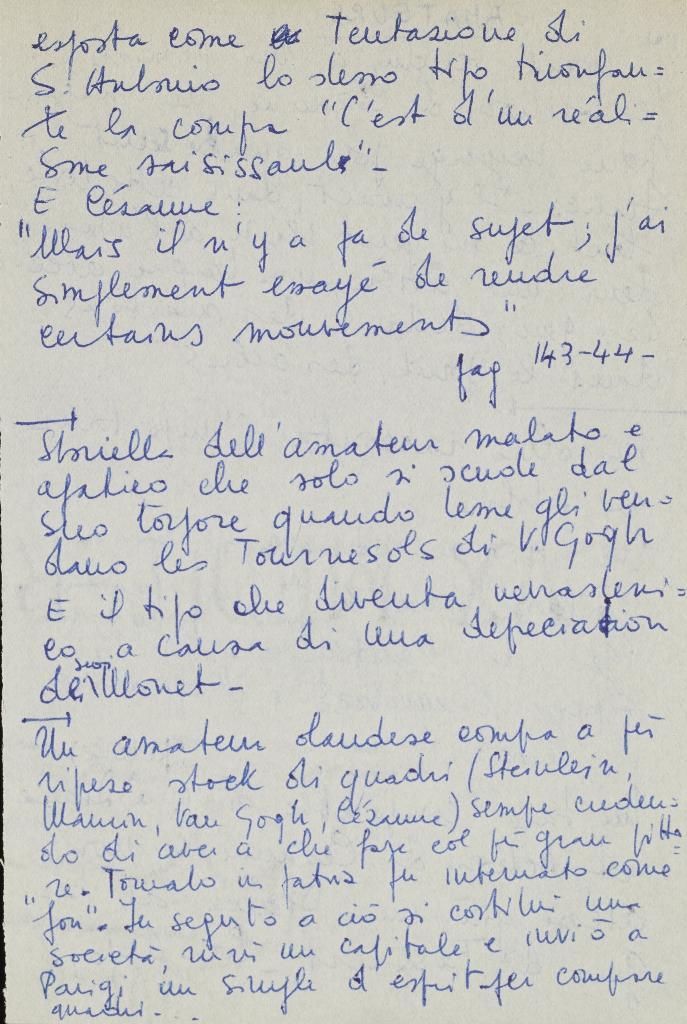 esposta come Tentasione di
S Antonio lo stesso tipo trionfan=
te la compra "C'est d'un réali=
sme saisissant"-
E Cézanne:
"Mais il n'y a pa de sujet; j'ai
simplement essayé de rendre
certains mouvements"
pag 143-44-
Storiella dell'amateur malato e
apatico che solo si scuote dal
suo torpore quando teme gli ven=
dano les Tournesols di V. Gogh
E il tipo che diventa nevrasteni=
co a causa di una depeciation
dei suoi Monet-
Un amateur olandese compra a più
riprese stock di quadri (Steinlein,
Maurin, Van Gogh, Cézanne) sempre creden=
do di aver a che fare col più gran pitto=
re. Tornato in patria fu internato come
"fou". In seguito a ciò si costituì una
società, riunì un capitale e inviò a
Parigi un simple d'esprit per comprare
quadri...